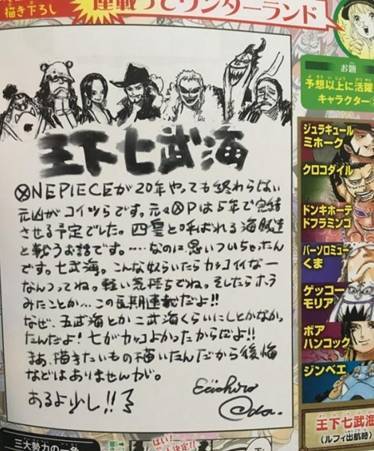 描き下ろし
連載ってワンダーランド
王下七武海
ONE PIECEが20年やっても終わらない
元凶がコイツらです。元々OPは5年で完結
させる予定でした。四皇と呼ばれる海賊達
と戦うお話です。……なのに思いついちゃったん
です。七武海。こんな奴らいたらカッコイイなー
なんつってね。軽い気持ちでね。そしたらホラ
みたことか…この長期連載だよ!!
なぜ、五武海とか三武海くらいにしとかなかっ
たんだよ!七がカッコよかったからだよ!!
まあ、描きたいもの描いたんだから後悔
などはありませんが。
あるよ少し!!
Eiichiro
Oda.
お題
予想以上に活躍
キャラクター
ジュラキュール
ミホーク
クロコダイル
ドンキホーテ
ドフラミンゴ
バーソロミュー
くま
ゲッコー
モリア
ボア
ハンコック
ジンベエ
王下七武海
(ルフィ出航時)
三大勢力の一角